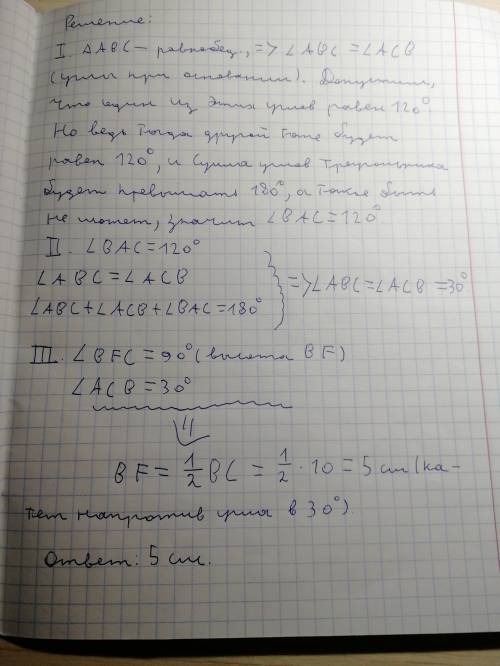 Решение:
I. △ABC — равнобед., => ∠ABC = ∠ACB
(углы при основании). Допустим,
что один из этих углов равен 120°.
Но ведь тогда другой тоже будет
равен 120°, и сумма углов треугольника
будет превышать 180°, а такое быть
не может, значит ∠BAC = 120°
II. ∠BAC = 120°
∠ABC = ∠ACB
∠ABC + ∠ACB + ∠BAC = 180°
=> ∠ABC = ∠ACB = 30°
III. ∠BFC = 90° (высота BF)
∠ACB = 30°
BF = 1/2 BC = 1/2 · 10 = 5 см (ка-
тет напротив угла в 30°)
Ответ: 5 см.